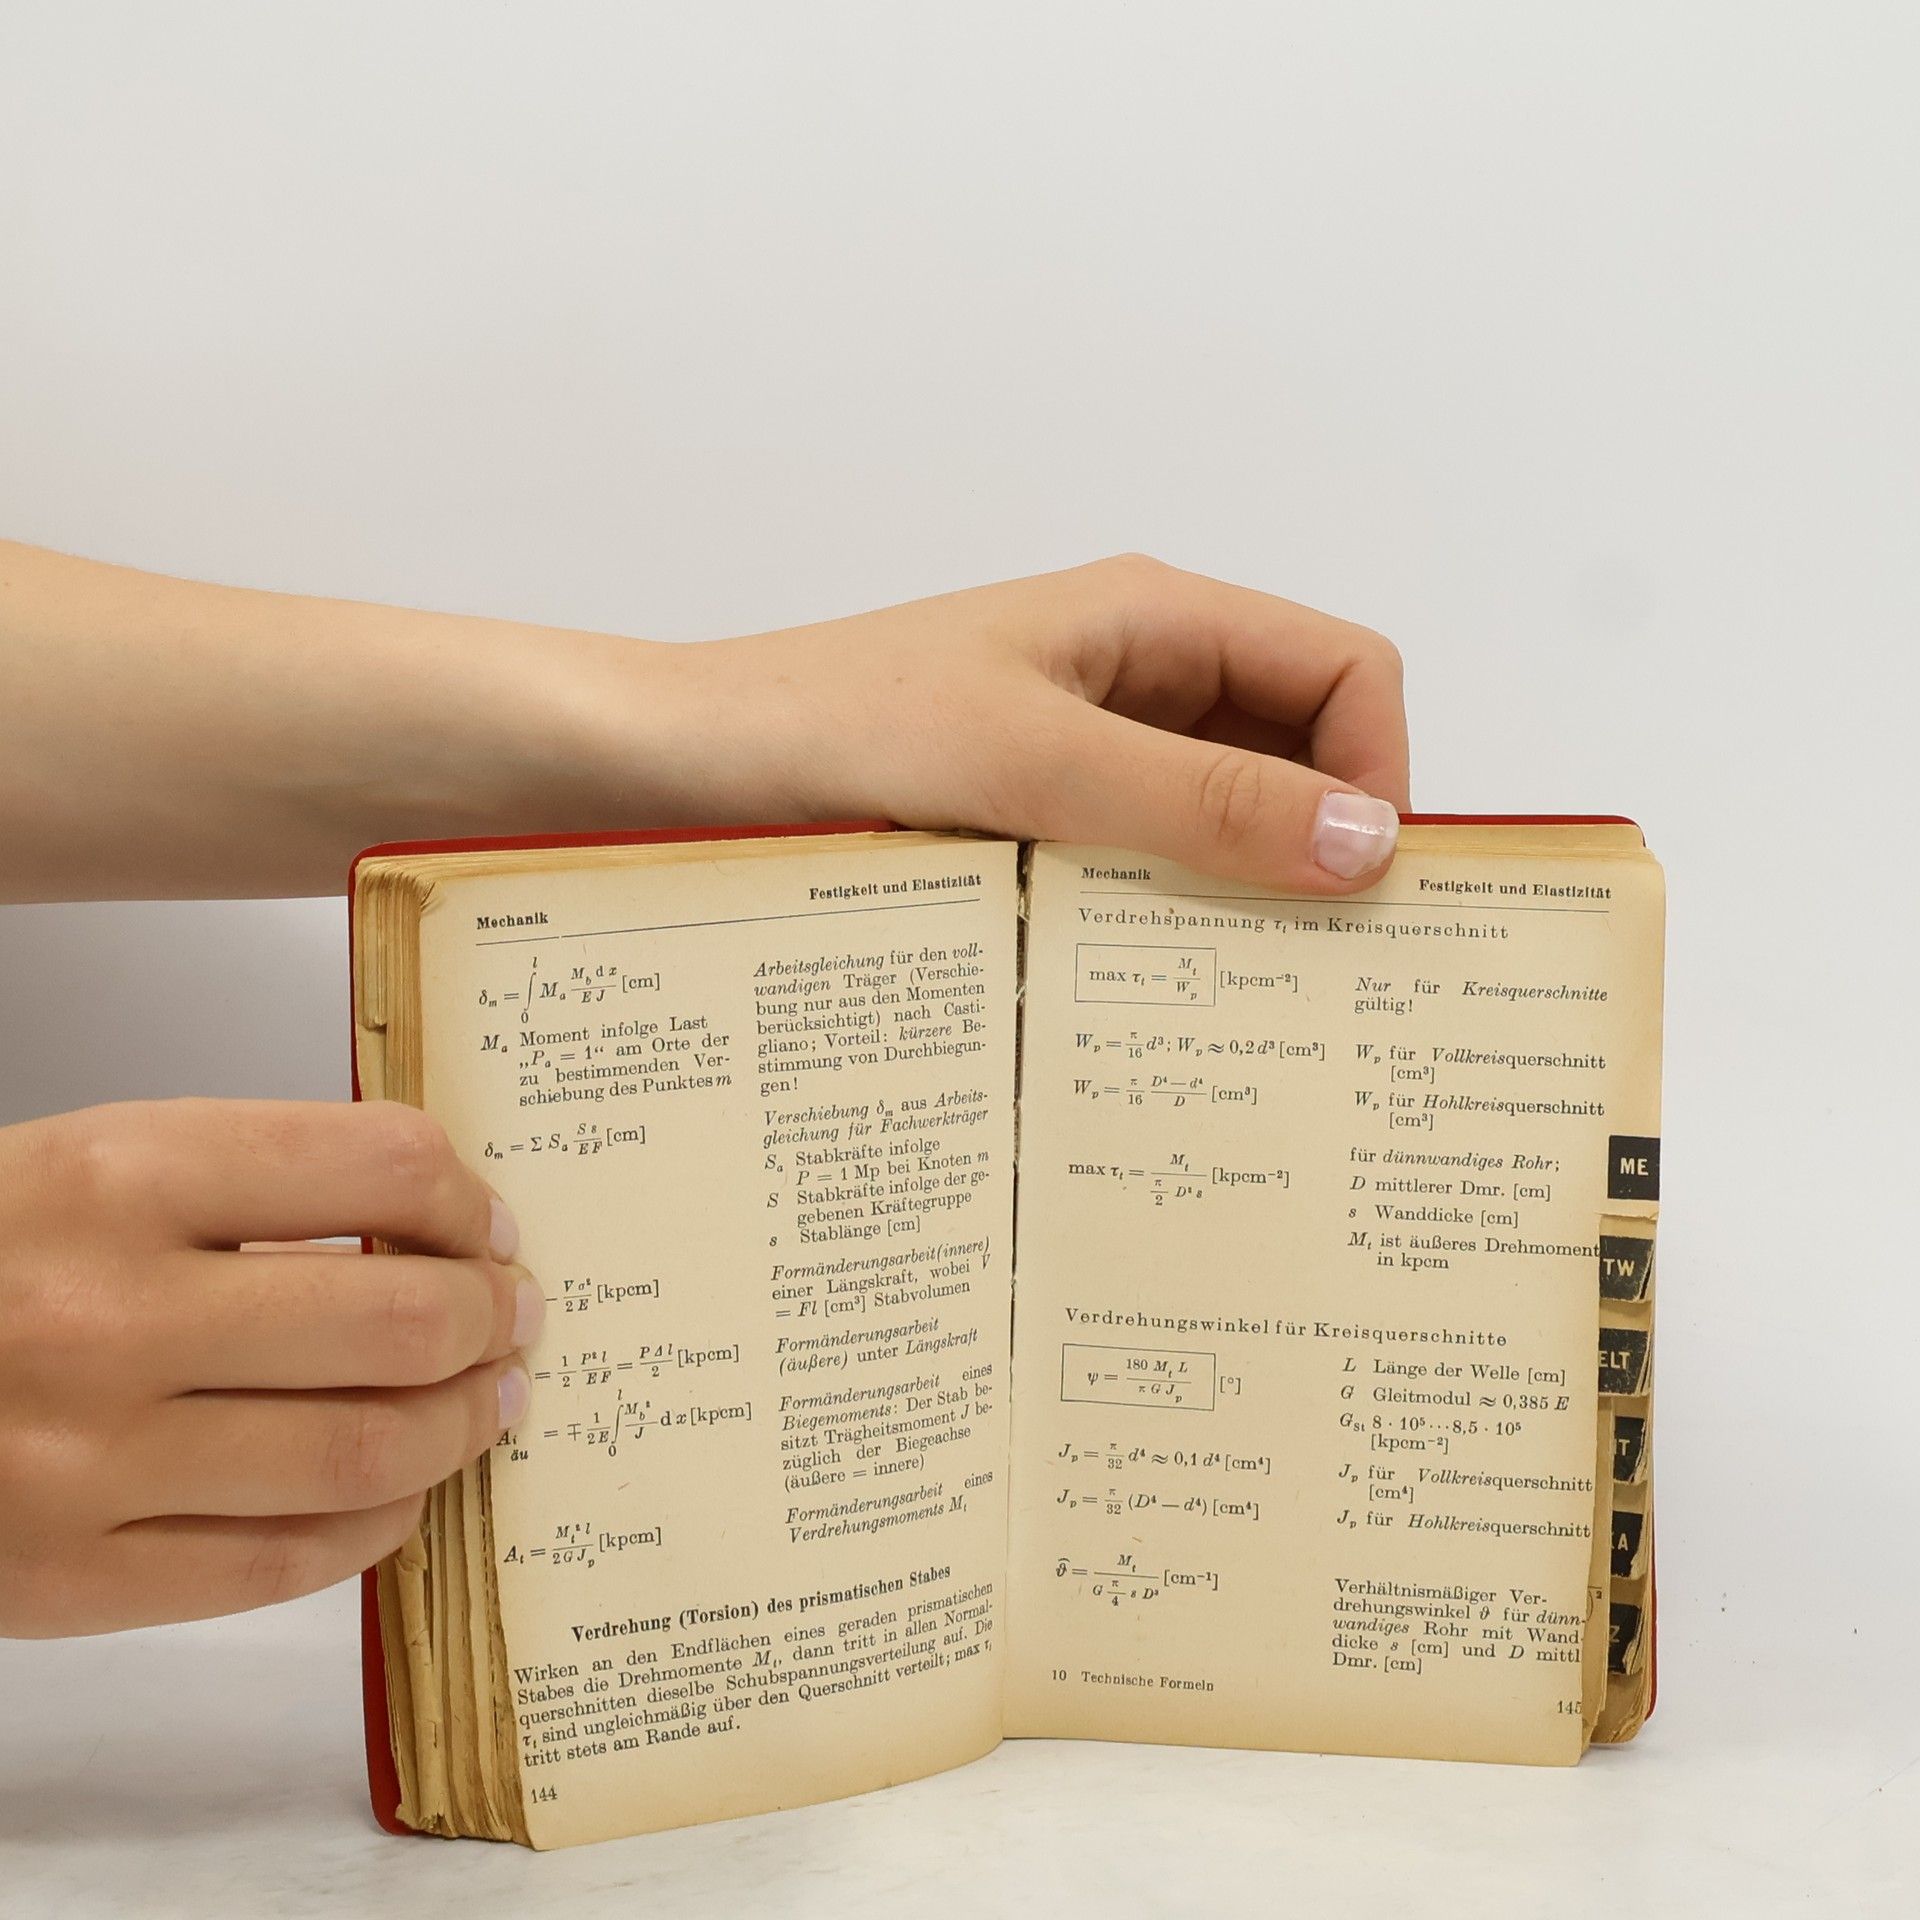 Mechanik Festigkeit und Elastizität
δₘ = ∫₀ˡ Mₐ M_b dx / EJ [cm]
Mₐ Moment infolge Last
„Pₐ = 1“ am Orte der
zu bestimmenden Ver-
schiebung des Punktes m
Arbeitsgleichung für den voll-
wandigen Träger (Verschie-
bung nur aus den Momenten
berücksichtigt) nach Casti-
gliano; Vorteil: kürzere Be-
stimmung von Durchbiegun-
gen!
δₘ = Σ Sₐ S s / EF [cm]
Verschiebung δₘ aus Arbeits-
gleichung für Fachwerkträger
Sₐ Stabkräfte infolge
P = 1 Mp bei Knoten m
S Stabkräfte infolge der ge-
gebenen Kräftegruppe
s Stablänge [cm]
V σ² / 2E [kpcm]
Formänderungsarbeit (innere)
einer Längskraft, wobei V
= Fl [cm³] Stabvolumen
= 1/2 P² l / EF = P Δl / 2 [kpcm]
Formänderungsarbeit
(äußere) unter Längskraft
Aᵢ äu = ∓ 1/2E ∫₀ˡ M_b² / J dx [kpcm]
Formänderungsarbeit eines
Biegemoments: Der Stab be-
sitzt Trägheitsmoment J be-
züglich der Biegeachse
(äußere = innere)
Aₜ = Mₜ² l / 2 G Jₚ [kpcm]
Formänderungsarbeit eines
Verdrehungsmoments Mₜ
Verdrehung (Torsion) des prismatischen Stabes
Wirken an den Endflächen eines geraden prismatischen
Stabes die Drehmomente Mₜ, dann tritt in allen Normal-
querschnitten dieselbe Schubspannungsverteilung auf. Die
τₜ sind ungleichmäßig über den Querschnitt verteilt; max τₜ
tritt stets am Rande auf.
144
Mechanik Festigkeit und Elastizität
Verdrehspannung τₜ im Kreisquerschnitt
max τₜ = Mₜ / Wₚ [kpcm⁻²]
Nur für Kreisquerschnitte
gültig!
Wₚ = π/16 d³; Wₚ ≈ 0,2 d³ [cm³]
Wₚ für Vollkreisquerschnitt
[cm³]
Wₚ = π/16 D⁴ — d⁴ / D [cm³]
Wₚ für Hohlkreisquerschnitt
[cm³]
max τₜ = Mₜ / π/2 D² s [kpcm⁻²]
für dünnwandiges Rohr;
D mittlerer Dmr. [cm]
s Wanddicke [cm]
Mₜ ist äußeres Drehmoment
in kpcm
Verdrehungswinkel für Kreisquerschnitte
ψ = 180 Mₜ L / π G Jₚ [°]
L Länge der Welle [cm]
G Gleitmodul ≈ 0,385 E
G_St 8 · 10⁵ ... 8,5 · 10⁵
[kpcm⁻²]
Jₚ = π/32 d⁴ ≈ 0,1 d⁴ [cm⁴]
Jₚ für Vollkreisquerschnitt
[cm⁴]
Jₚ = π/32 (D⁴ — d⁴) [cm⁴]
Jₚ für Hohlkreisquerschnitt
ϑ̂ = Mₜ / G π/4 s D³ [cm⁻¹]
Verhältnismäßiger Ver-
drehungswinkel ϑ für dünn-
wandiges Rohr mit Wand-
dicke s [cm] und D mittl
Dmr. [cm]
10 Technische Formeln
145
ME
TW
ELT